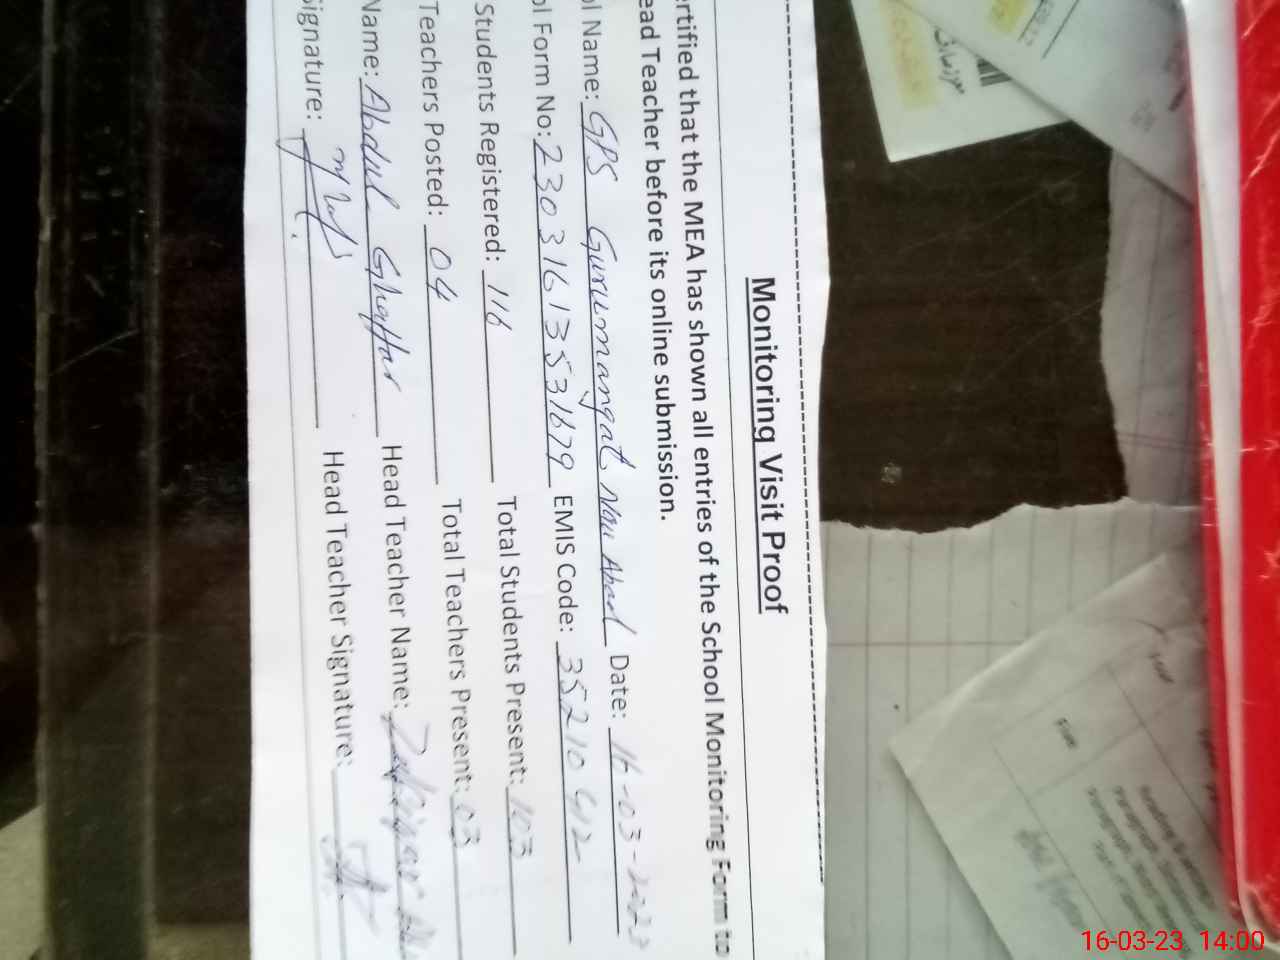 Monitoring Visit Proof
ertified that the MEA has shown all entries of the School Monitoring Form to
ead Teacher before its online submission.
ol Name: GPS Gurumangat New Abad Date: 16-03-2023
ol Form No: 23031613531679 EMIS Code: 35210412
Students Registered: 116 Total Students Present: 103
Teachers Posted: 04 Total Teachers Present: 03
Name: Abdul Ghaffar Head Teacher Name:
Signature: Head Teacher Signature:
16-03-23 14:00